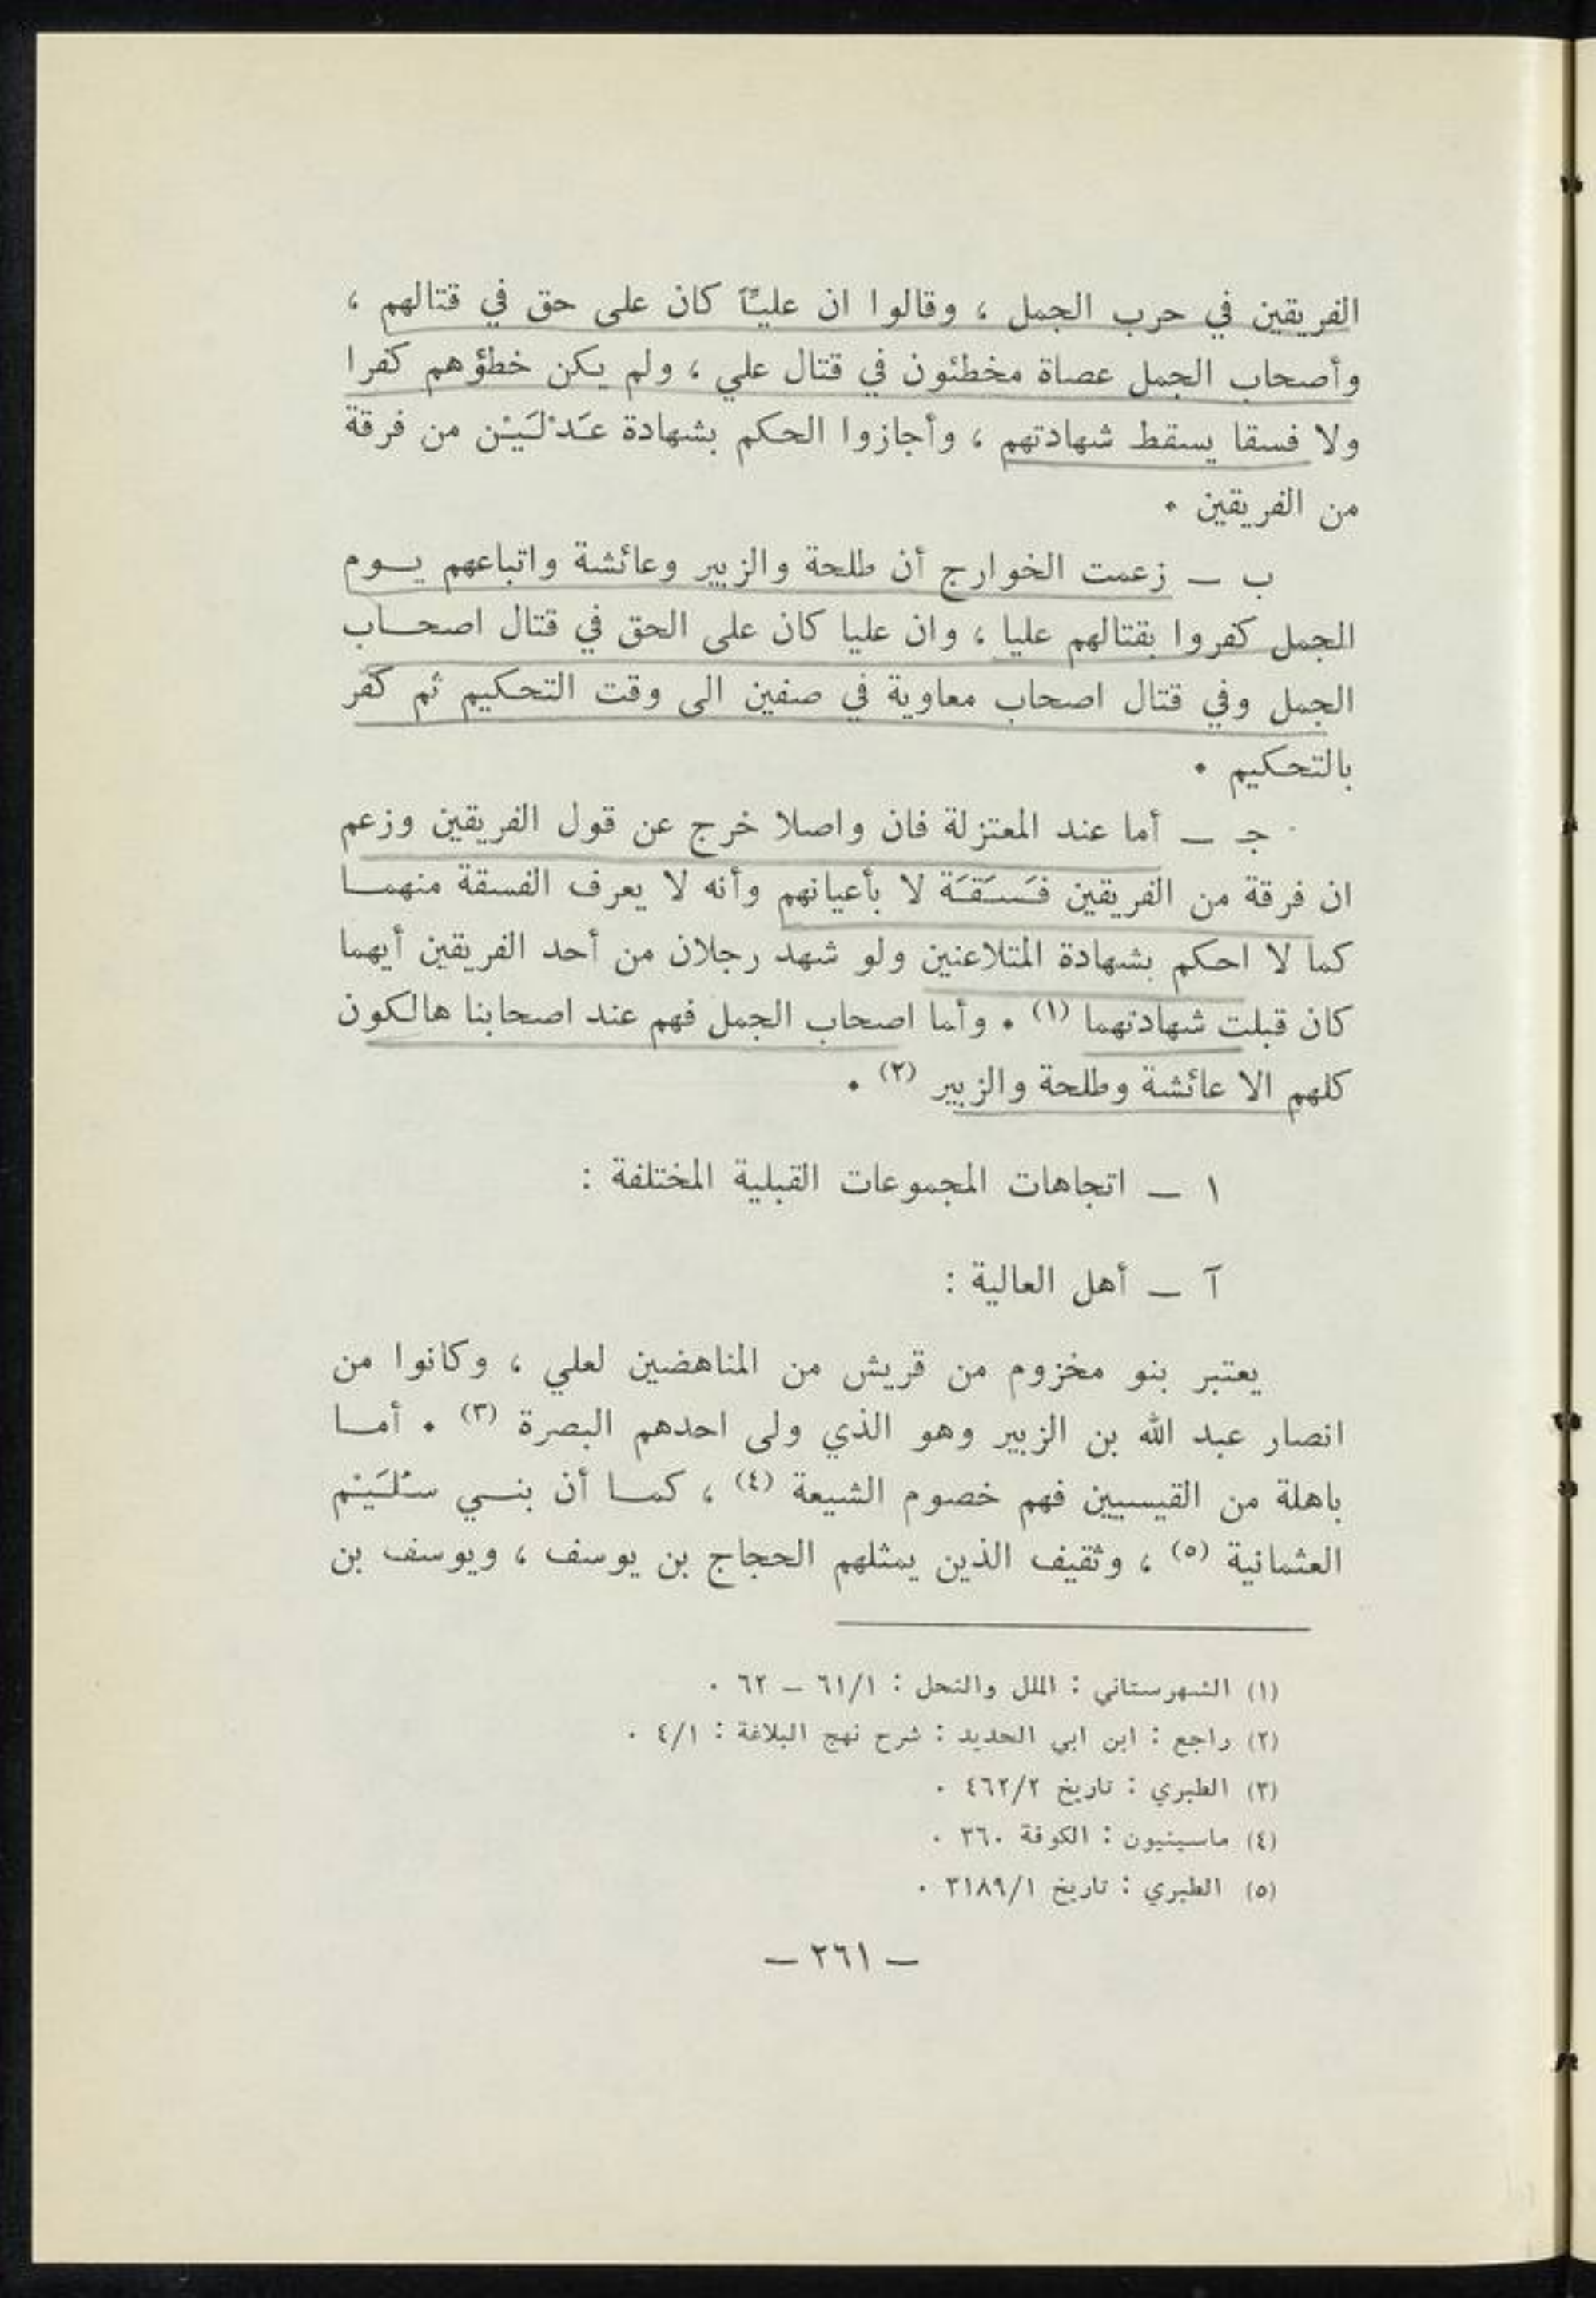 الفريقين في حرب الجمل ، وقالوا ان عليّاً كان على حق في قتالهم ،
وأصحاب الجمل عصاة مخطئون في قتال علي ، ولم يكن خطؤهم كفرا
ولا فسقا يسقط شهادتهم ، وأجازوا الحكم بشهادة عَدْلَيْن من فرقة
من الفريقين .
ب ــ زعمت الخوارج أن طلحة والزبير وعائشة واتباعهم يــوم
الجمل كفروا بقتالهم عليا ، وان عليا كان على الحق في قتال اصحــاب
الجمل وفي قتال اصحاب معاوية في صفين الى وقت التحكيم ثم كفر
بالتحكيم .
جـ ــ أما عند المعتزلة فان واصلا خرج عن قول الفريقين وزعم
ان فرقة من الفريقين فَسَقَة لا بأعيانهم وأنه لا يعرف الفسقة منهمــا
كما لا احكم بشهادة المتلاعنين ولو شهد رجلان من أحد الفريقين أيهما
كان قبلت شهادتهما (١) . وأما اصحاب الجمل فهم عند اصحابنا هالكون
كلهم الا عائشة وطلحة والزبير (٢) .
١ ــ اتجاهات المجموعات القبلية المختلفة :
آ ــ أهل العالية :
يعتبر بنو مخزوم من قريش من المناهضين لعلي ، وكانوا من
انصار عبد الله بن الزبير وهو الذي ولى احدهم البصرة (٣) . أمــا
باهلة من القيسيين فهم خصوم الشيعة (٤) ، كمــا أن بنــي سُلَيْم
العثمانية (٥) ، وثقيف الذين يمثلهم الحجاج بن يوسف ، ويوسف بن
(١) الشهرستاني : الملل والنحل : ٦١/١ – ٦٢ .
(٢) راجع : ابن ابي الحديد : شرح نهج البلاغة : ٤/١ .
(٣) الطبري : تاريخ ٤٦٢/٢ .
(٤) ماسينيون : الكوفة ٣٦٠ .
(٥) الطبري : تاريخ ٣١٨٩/١ .
– ٢٦١ –